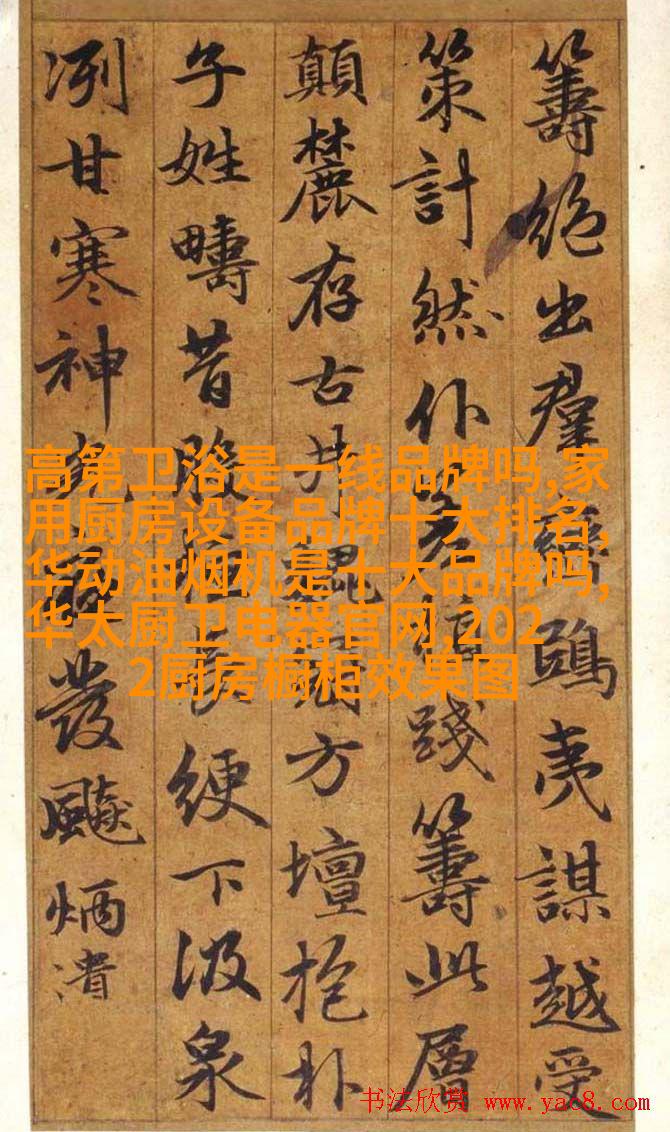 籌絕出羣鴟夷謀越受
策計然仆踐籌此層
顛麓存古井方壇抱朴
子姓疇昔綆下汲泉
冽甘寒神發飈炳潰
高第卫浴是一线品牌吗,家
用厨房设备品牌十大排名,
华动油烟机是十大品牌吗,
华太厨卫电器官网,202
2厨房橱柜效果图
书法欣赏 www.yac8.com